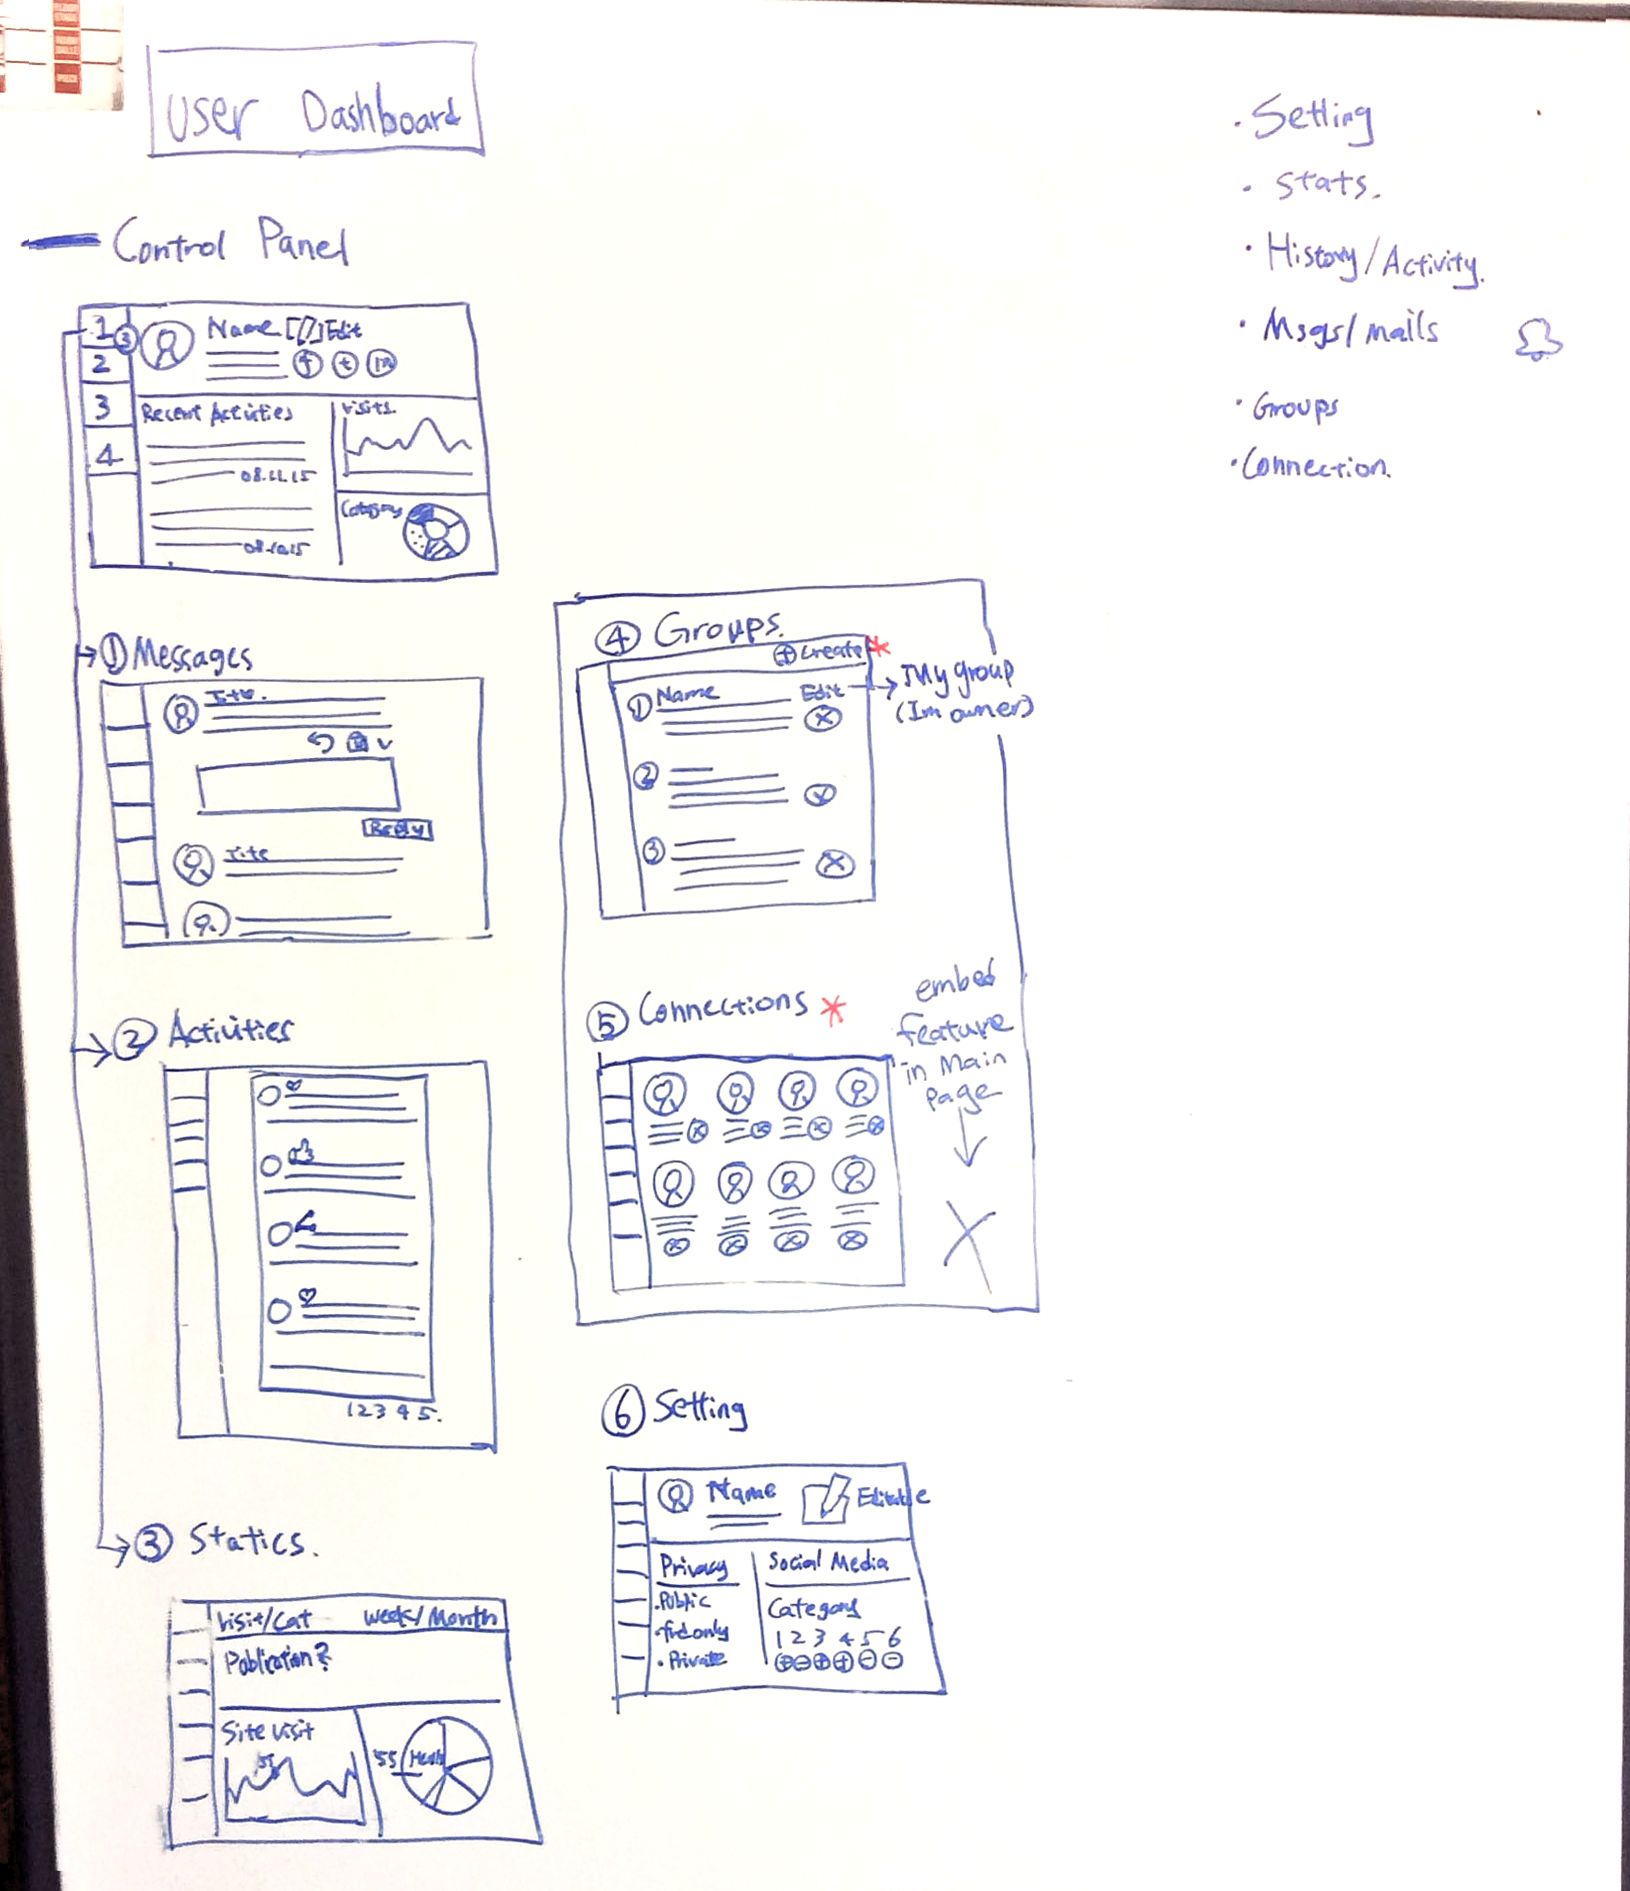 User Dashboard
Control Panel
1
3
2
3
4
Name [ ] Edit
f t in
Recent Activities
08.11.15
08.10.15
Visits
Category
① Messages
Title.
Reply
Title
② Activities
1 2 3 4 5.
③ Statics.
Visit/Cat Week/Month
Publication?
Site Visit
55
④ Groups.
+ Create *
① Name Edit
→ My group
(Im owner)
②
③
⑤ Connections *
embed
feature
in Main
Page
⑥ Setting
Name Editable
Privacy
. Public
. frd only
. Private
Social Media
Category
1 2 3 4 5 6
+ − + + − −
· Setting
· Stats.
· History/Activity.
· Msgs/mails
· Groups
· Connection.